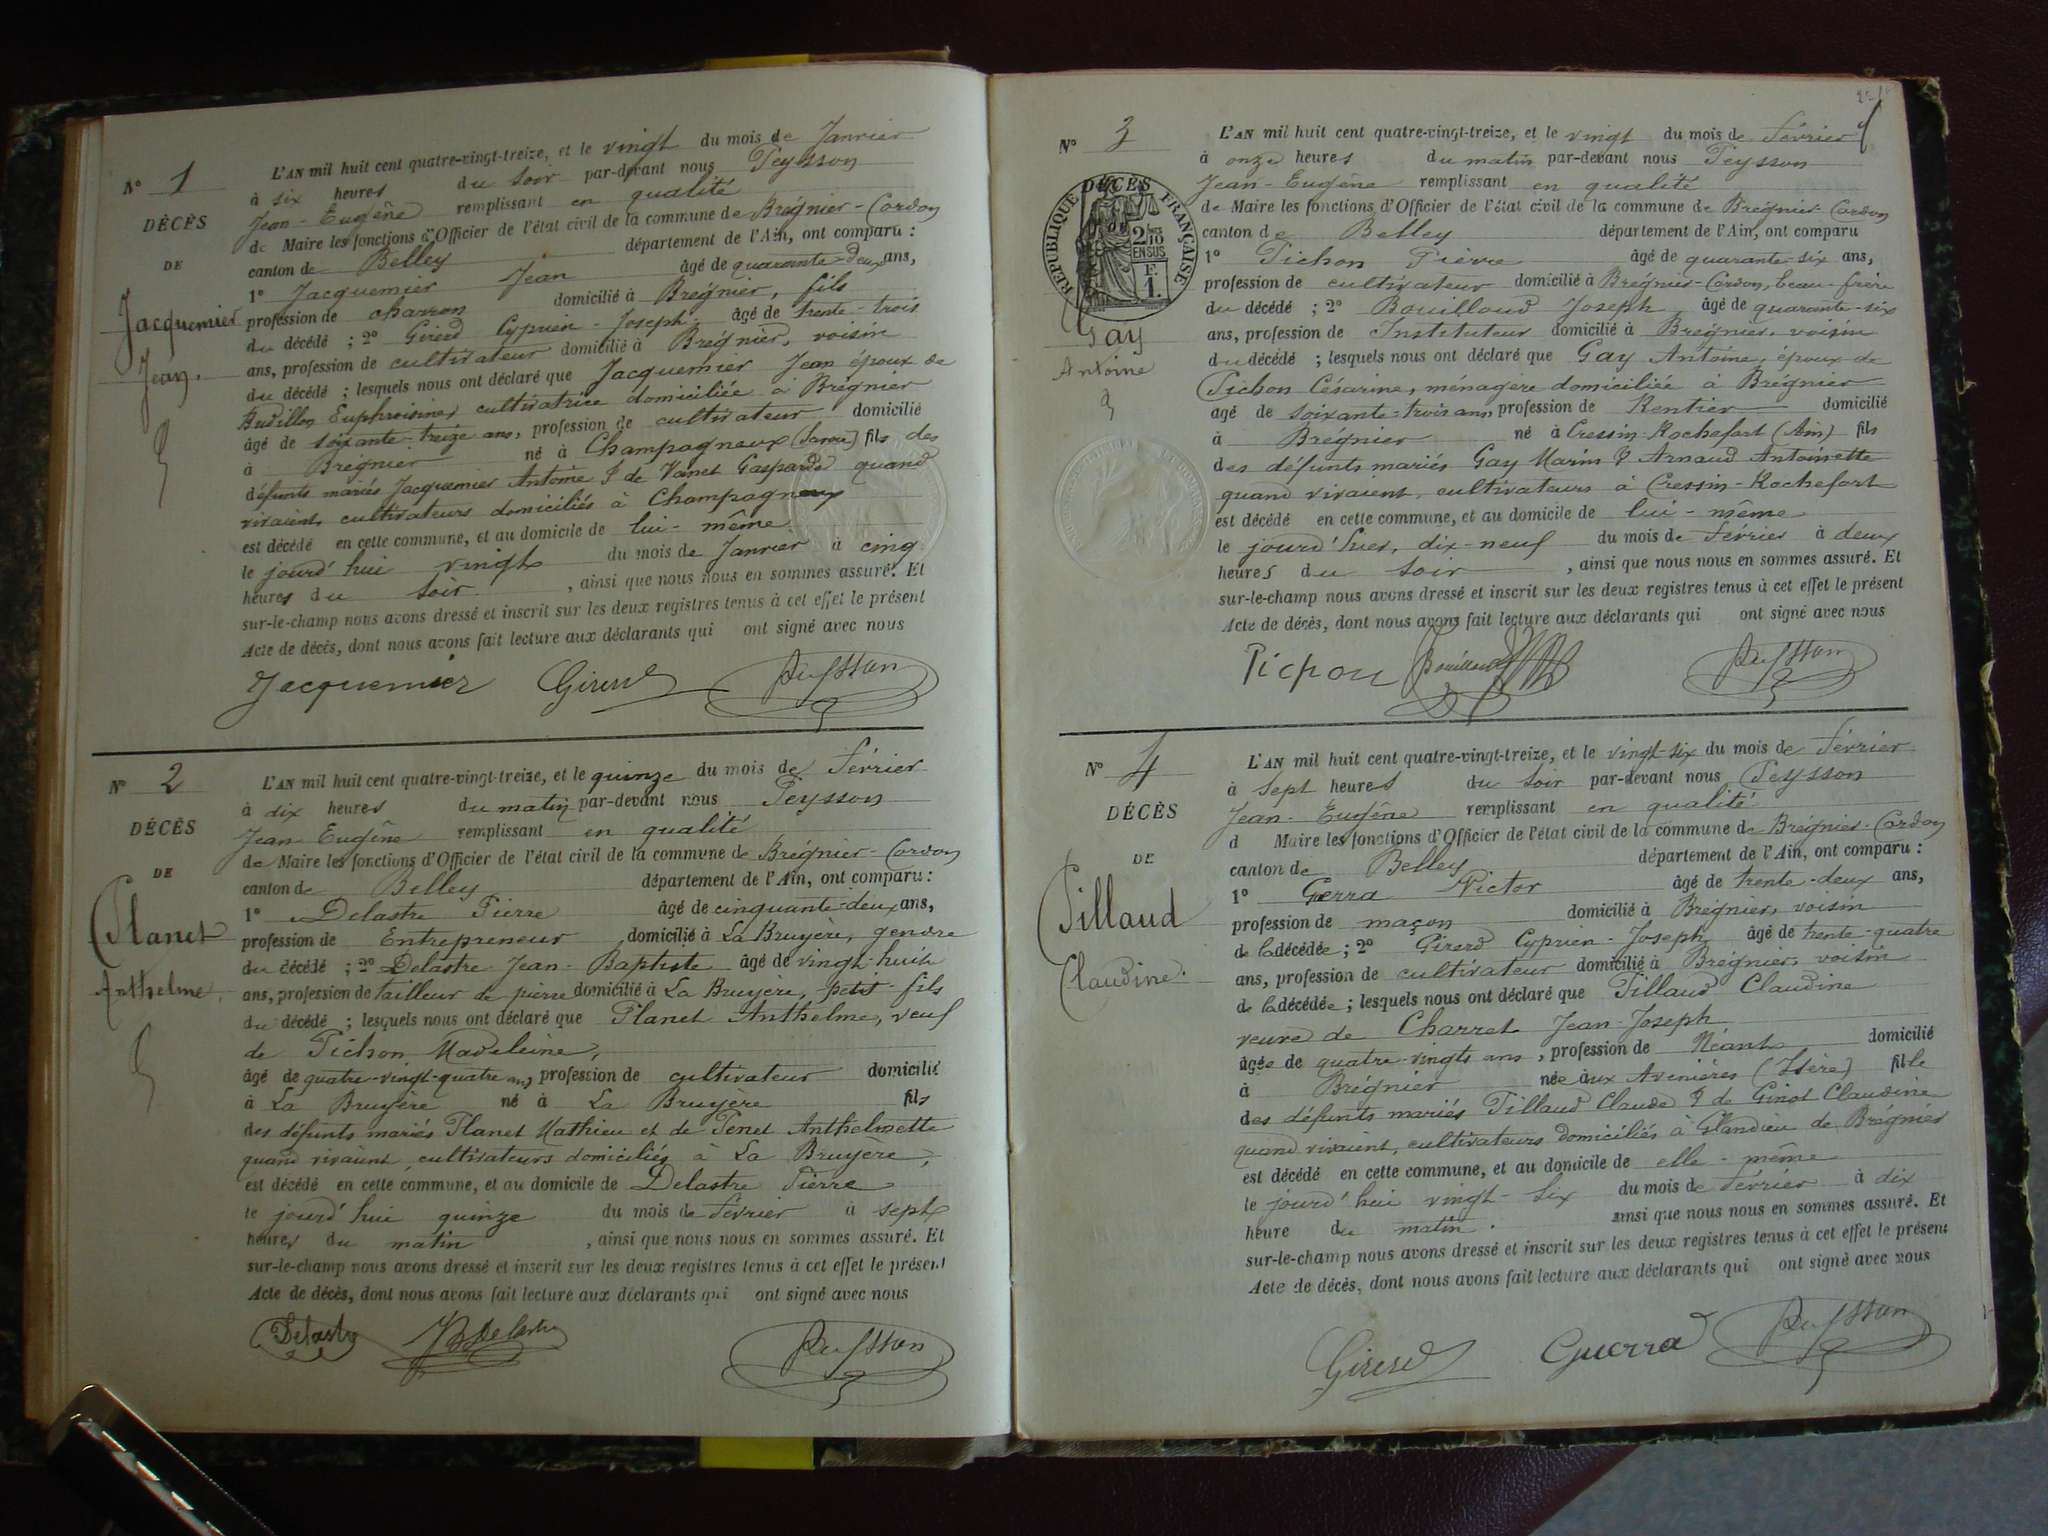 N° 1
DÉCÈS
DE
Jacquemier
Jean.
L'AN mil huit cent quatre-vingt-treize, et le vingt du mois de Janvier
à six heures du soir par-devant nous Peysson
Jean-Eugène remplissant en qualité
de Maire les fonctions d'Officier de l'état civil de la commune de Brégnier-Cordon
canton de Belley département de l'Ain, ont comparu :
1° Jacquemier Jean âgé de quarante-deux ans,
profession de charron domicilié à Brégnier, fils
du décédé ; 2° Girerd Cyprien-Joseph âgé de trente-trois
ans, profession de cultivateur domicilié à Brégnier, voisin
du décédé ; lesquels nous ont déclaré que Jacquemier Jean époux de
Budillon cultivatrice domiciliée à Brégnier
âgé de soixante-treize ans, profession de cultivateur domicilié
à Brégnier né à Champagneux (Savoie) fils des
défunts mariés Jacquemier Antoine & de Gasparde quand
vivaient, cultivateurs domiciliés à Champagneux
est décédé en cette commune, et au domicile de lui-même
le jourd'hui vingt du mois de Janvier à cinq
heures du soir , ainsi que nous nous en sommes assuré. Et
sur-le-champ nous avons dressé et inscrit sur les deux registres tenus à cet effet le présent
Acte de décès, dont nous avons fait lecture aux déclarants qui ont signé avec nous
Jacquemier Girerd Peysson
N° 2
DÉCÈS
DE
Planet
Anthelme.
L'AN mil huit cent quatre-vingt-treize, et le quinze du mois de Février
à dix heures du matin par-devant nous Peysson
Jean-Eugène remplissant en qualité
de Maire les fonctions d'Officier de l'état civil de la commune de Brégnier-Cordon
canton de Belley département de l'Ain, ont comparu :
1° Delastre Pierre âgé de cinquante-deux ans,
profession de Entrepreneur domicilié à La Bruyère, gendre
du décédé ; 2° Delastre Jean-Baptiste âgé de vingt-huit
ans, profession de tailleur de pierre domicilié à La Bruyère, petit-fils
du décédé ; lesquels nous ont déclaré que Planet Anthelme, veuf
de Pichon Madeleine,
âgé de quatre-vingt-quatre ans, profession de cultivateur domicilié
à La Bruyère né à La Bruyère fils
des défunts mariés Planet Mathieu et de Penet Anthelmette
quand vivaient, cultivateurs domiciliés à La Bruyère,
est décédé en cette commune, et au domicile de Delastre Pierre
le jourd'hui quinze du mois de Février à sept
heures du matin , ainsi que nous nous en sommes assuré. Et
sur-le-champ nous avons dressé et inscrit sur les deux registres tenus à cet effet le présent
Acte de décès, dont nous avons fait lecture aux déclarants qui ont signé avec nous
Delastre JB Delastre Peysson
N° 3
DÉCÈS
RÉPUBLIQUE FRANÇAISE
2/10 EN SUS
F. 1.
Gay
Antoine
L'AN mil huit cent quatre-vingt-treize, et le vingt du mois de Février
à onze heures du matin par-devant nous Peysson
Jean-Eugène remplissant en qualité
de Maire les fonctions d'Officier de l'état civil de la commune de Brégnier-Cordon
canton de Belley département de l'Ain, ont comparu
1° Pichon Pierre âgé de quarante-six ans,
profession de cultivateur domicilié à Brégnier-Cordon, beau-frère
du décédé ; 2° Bouilloud Joseph âgé de quarante-six
ans, profession de Instituteur domicilié à Brégnier, voisin
du décédé ; lesquels nous ont déclaré que Gay Antoine, époux de
Pichon Césarine, ménagère domiciliée à Brégnier
agé de soixante-trois ans, profession de Rentier domicilié
à Brégnier né à Cressin-Rochefort (Ain) fils
des défunts mariés Gay Marin & Arnaud Antoinette
quand vivaient, cultivateurs à Cressin-Rochefort
est décédé en cette commune, et au domicile de lui-même
le jourd'hier, dix-neuf du mois de Février à deux
heures du soir , ainsi que nous nous en sommes assuré. Et
sur-le-champ nous avons dressé et inscrit sur les deux registres tenus à cet effet le présent
Acte de décès, dont nous avons fait lecture aux déclarants qui ont signé avec nous
Pichon Bouilloud Peysson
N° 4
DÉCÈS
DE
Tillaud
Claudine.
L'AN mil huit cent quatre-vingt-treize, et le vingt-six du mois de Février
à sept heures du soir par-devant nous Peysson
Jean-Eugène remplissant en qualité
d Maire les fonctions d'Officier de l'état civil de la commune de Brégnier-Cordon
canton de Belley département de l'Ain, ont comparu :
1° Gerra Victor âgé de trente-deux ans,
profession de maçon domicilié à Brégnier, voisin
de la décédée ; 2° Girerd Cyprien-Joseph âgé de trente-quatre
ans, profession de cultivateur domicilié à Brégnier, voisin
de la décédée ; lesquels nous ont déclaré que Tillaud Claudine
veuve de Charret Jean-Joseph
âgée de quatre-vingts ans, profession de Néant domicilié
à Brégnier née aux Avenières (Isère) fille
des défunts mariés Tillaud Claude & de Ginot Claudine
quand vivaient, cultivateurs domiciliés à Glandieu de Brégnier
est décédé en cette commune, et au domicile de elle-même
le jourd'hui vingt-six du mois de Février à dix
heure du matin. ainsi que nous nous en sommes assuré. Et
sur-le-champ nous avons dressé et inscrit sur les deux registres tenus à cet effet le présent
Acte de décès, dont nous avons fait lecture aux déclarants qui ont signé avec nous
Girerd Guerra Peysson